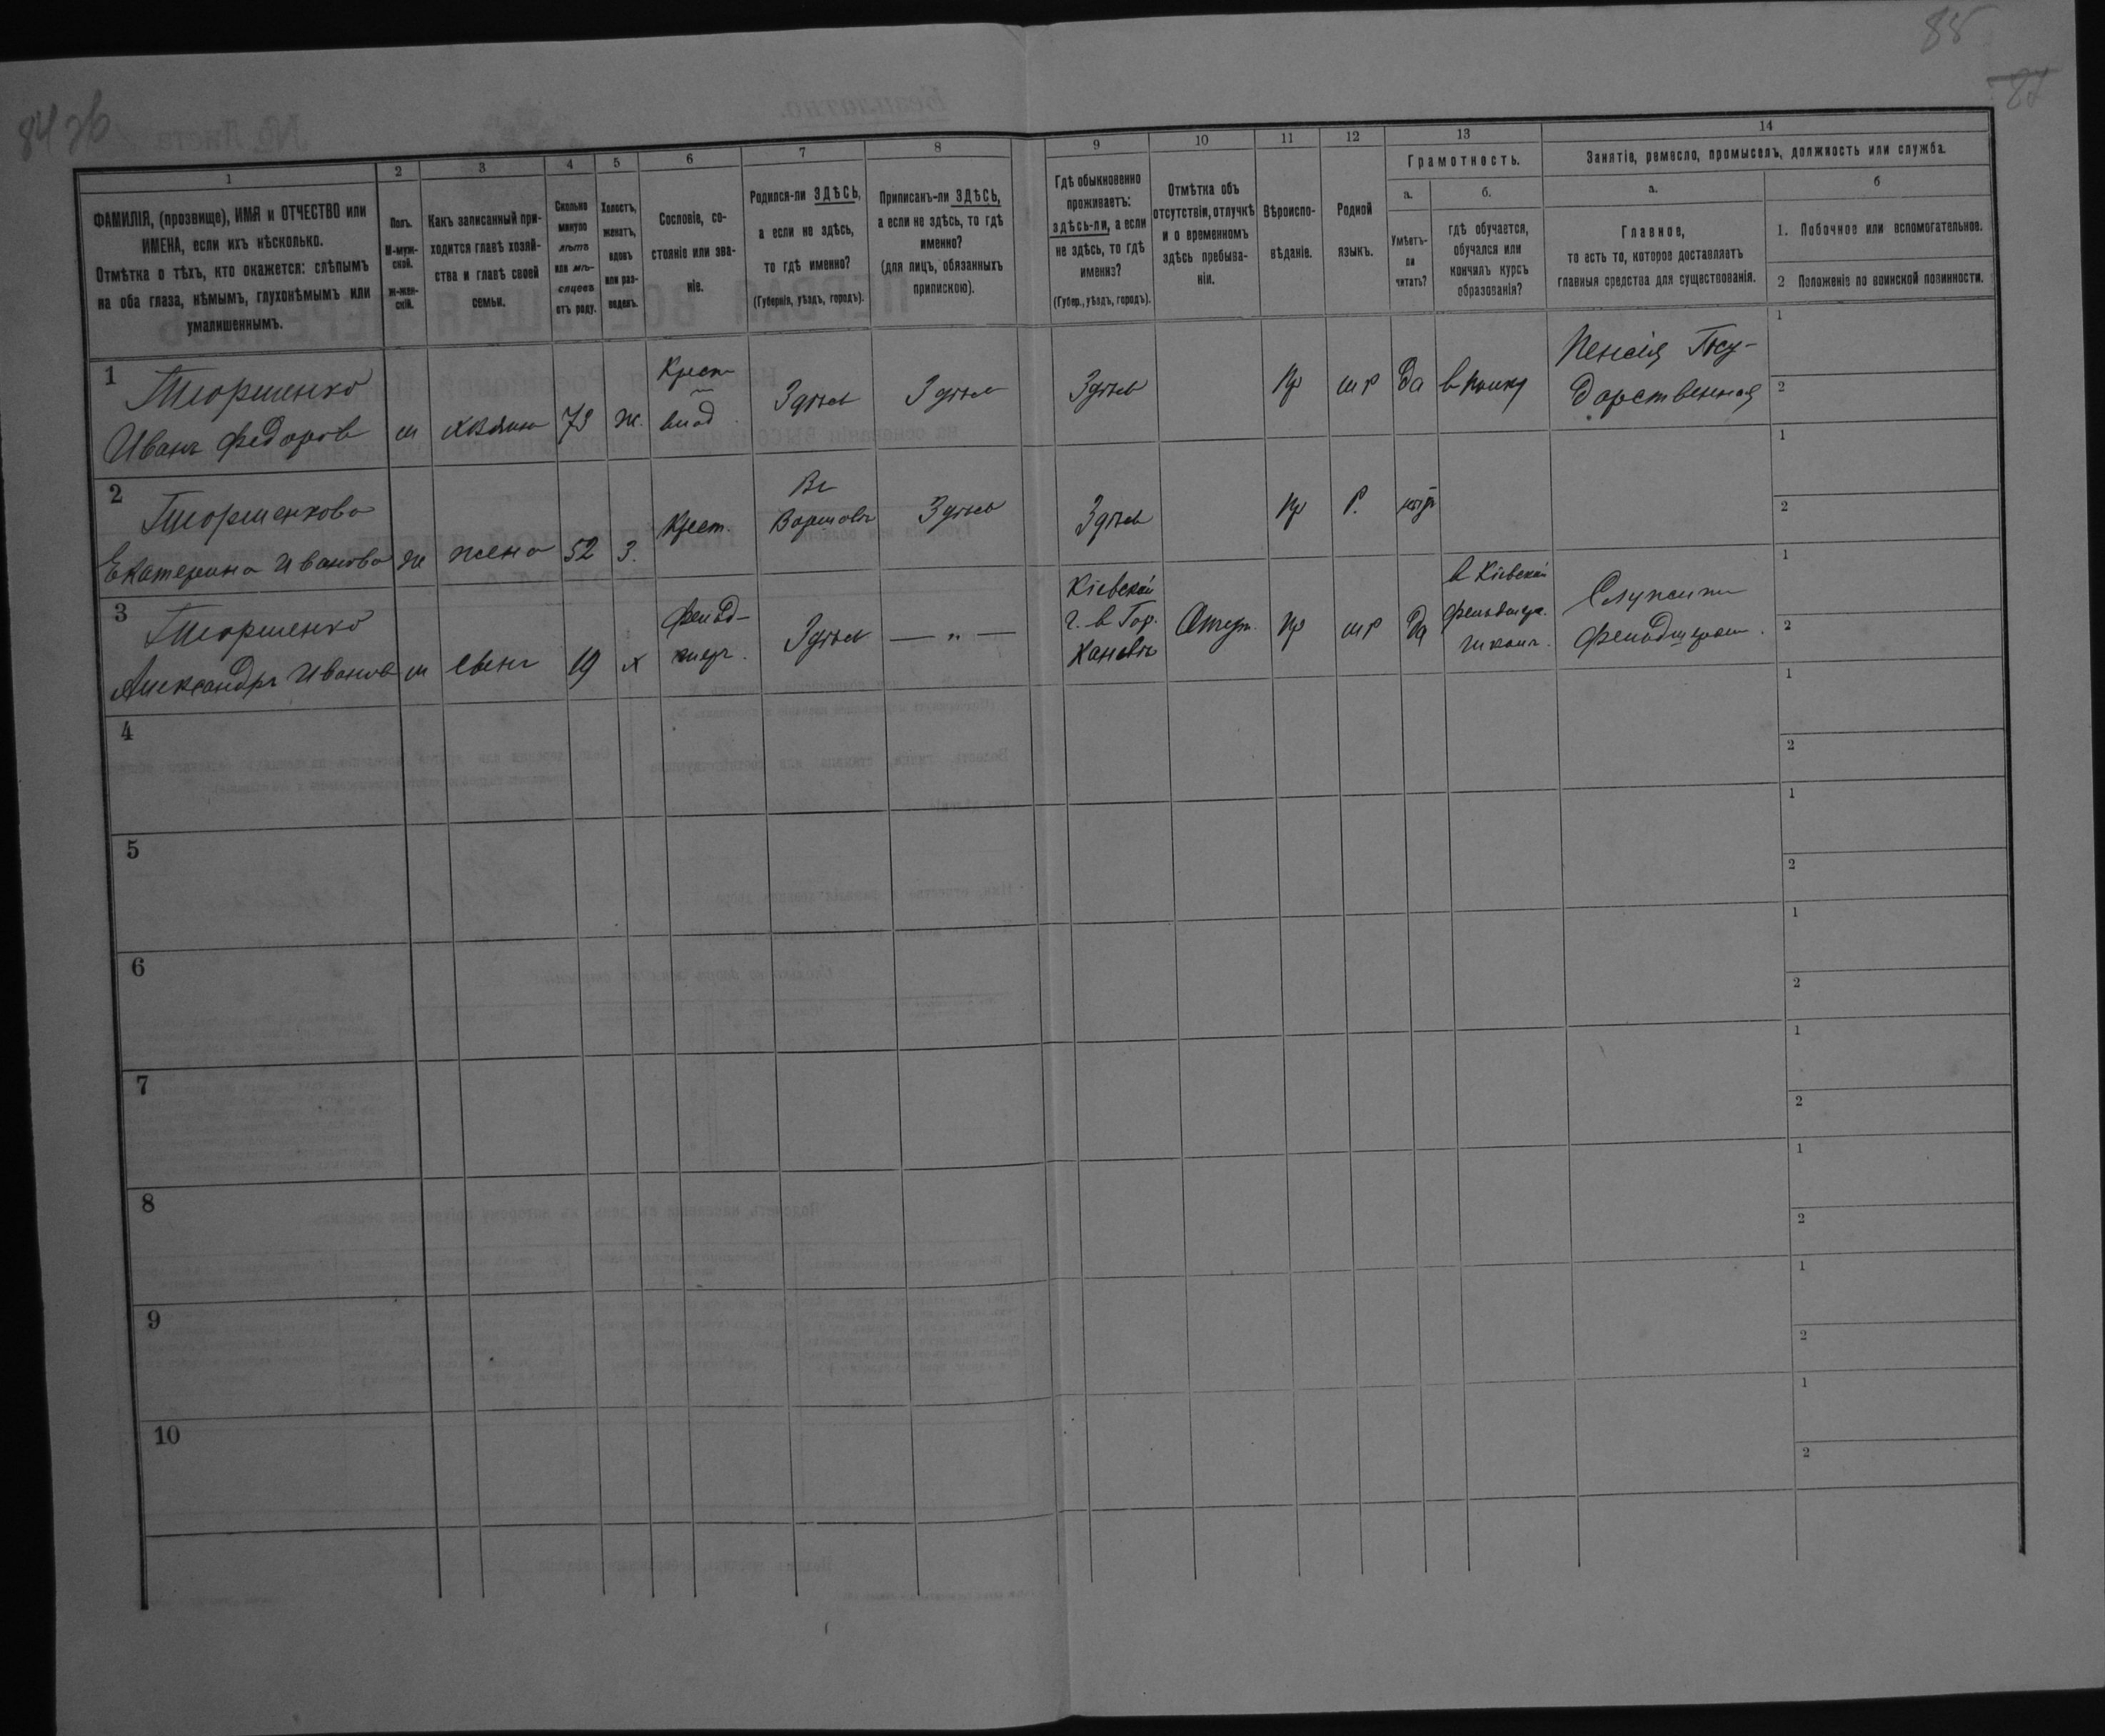 84 об
88
87
1
2
3
4
5
6
7
8
9
10
11
12
13
14
ФАМИЛІЯ, (прозвище), ИМЯ и ОТЧЕСТВО или
ИМЕНА, если ихъ нѣсколько.
Отмѣтка о тѣхъ, кто окажется: слѣпымъ
на оба глаза, нѣмымъ, глухонѣмымъ или
умалишеннымъ.
Полъ.
М-муж-
ской.
ж-жен-
скій.
Какъ записанный при-
ходится главѣ хозяй-
ства и главѣ своей
семьи.
Сколько
минуло
лѣтъ
или мѣ-
сяцевъ
отъ роду.
Холостъ,
женатъ,
вдовъ
или раз-
веденъ.
Сословіе, со-
стояніе или зва-
ніе.
Родился-ли ЗДѢСЬ,
а если не здѣсь,
то гдѣ именно?
(Губернія, уѣздъ, городъ).
Приписанъ-ли ЗДѢСЬ,
а если не здѣсь, то гдѣ
именно?
(для лицъ, обязанныхъ
припискою).
Гдѣ обыкновенно
проживаетъ:
здѣсь-ли, а если
не здѣсь, то гдѣ
именно?
(Губер., уѣздъ, городъ).
Отмѣтка объ
отсутствіи, отлучкѣ
и о временномъ
здѣсь пребыва-
ніи.
Вѣроиспо-
вѣданіе.
Родной
языкъ.
Грамотность.
а.
Умѣетъ-
ли
читать?
б.
гдѣ обучается,
обучался или
кончилъ курсъ
образованія?
Занятіе, ремесло, промыселъ, должность или служба.
а.
Главное,
то есть то, которое доставляетъ
главныя средства для существованія.
б
1. Побочное или вспомогательное.
2 Положеніе по воинской повинности.
1
Иванъ Федоровъ
м
хозяинъ
73
ж.
Крест
Здѣсь
Здѣсь
Здѣсь
пр
мр
да
в полку
Пенсія Госу-
дарственная
1
2
2
Екатерина Иванова
ж
жена
52
з.
Крест.
Въ
Варшавѣ
Здѣсь
Здѣсь
пр
Р.
1
2
3
Александръ Ивановъ
м
сынъ
19
х
фельд-
шеръ.
Здѣсь
— „ —
Кіевской
г. в Гор.
Каневѣ
Отсут.
пр
мр
да
в Кіевской
фельдшер.
школѣ.
Служитъ
фельдшеромъ.
1
2
4
1
2
5
1
2
6
1
2
7
1
2
8
1
2
9
1
2
10
1
2